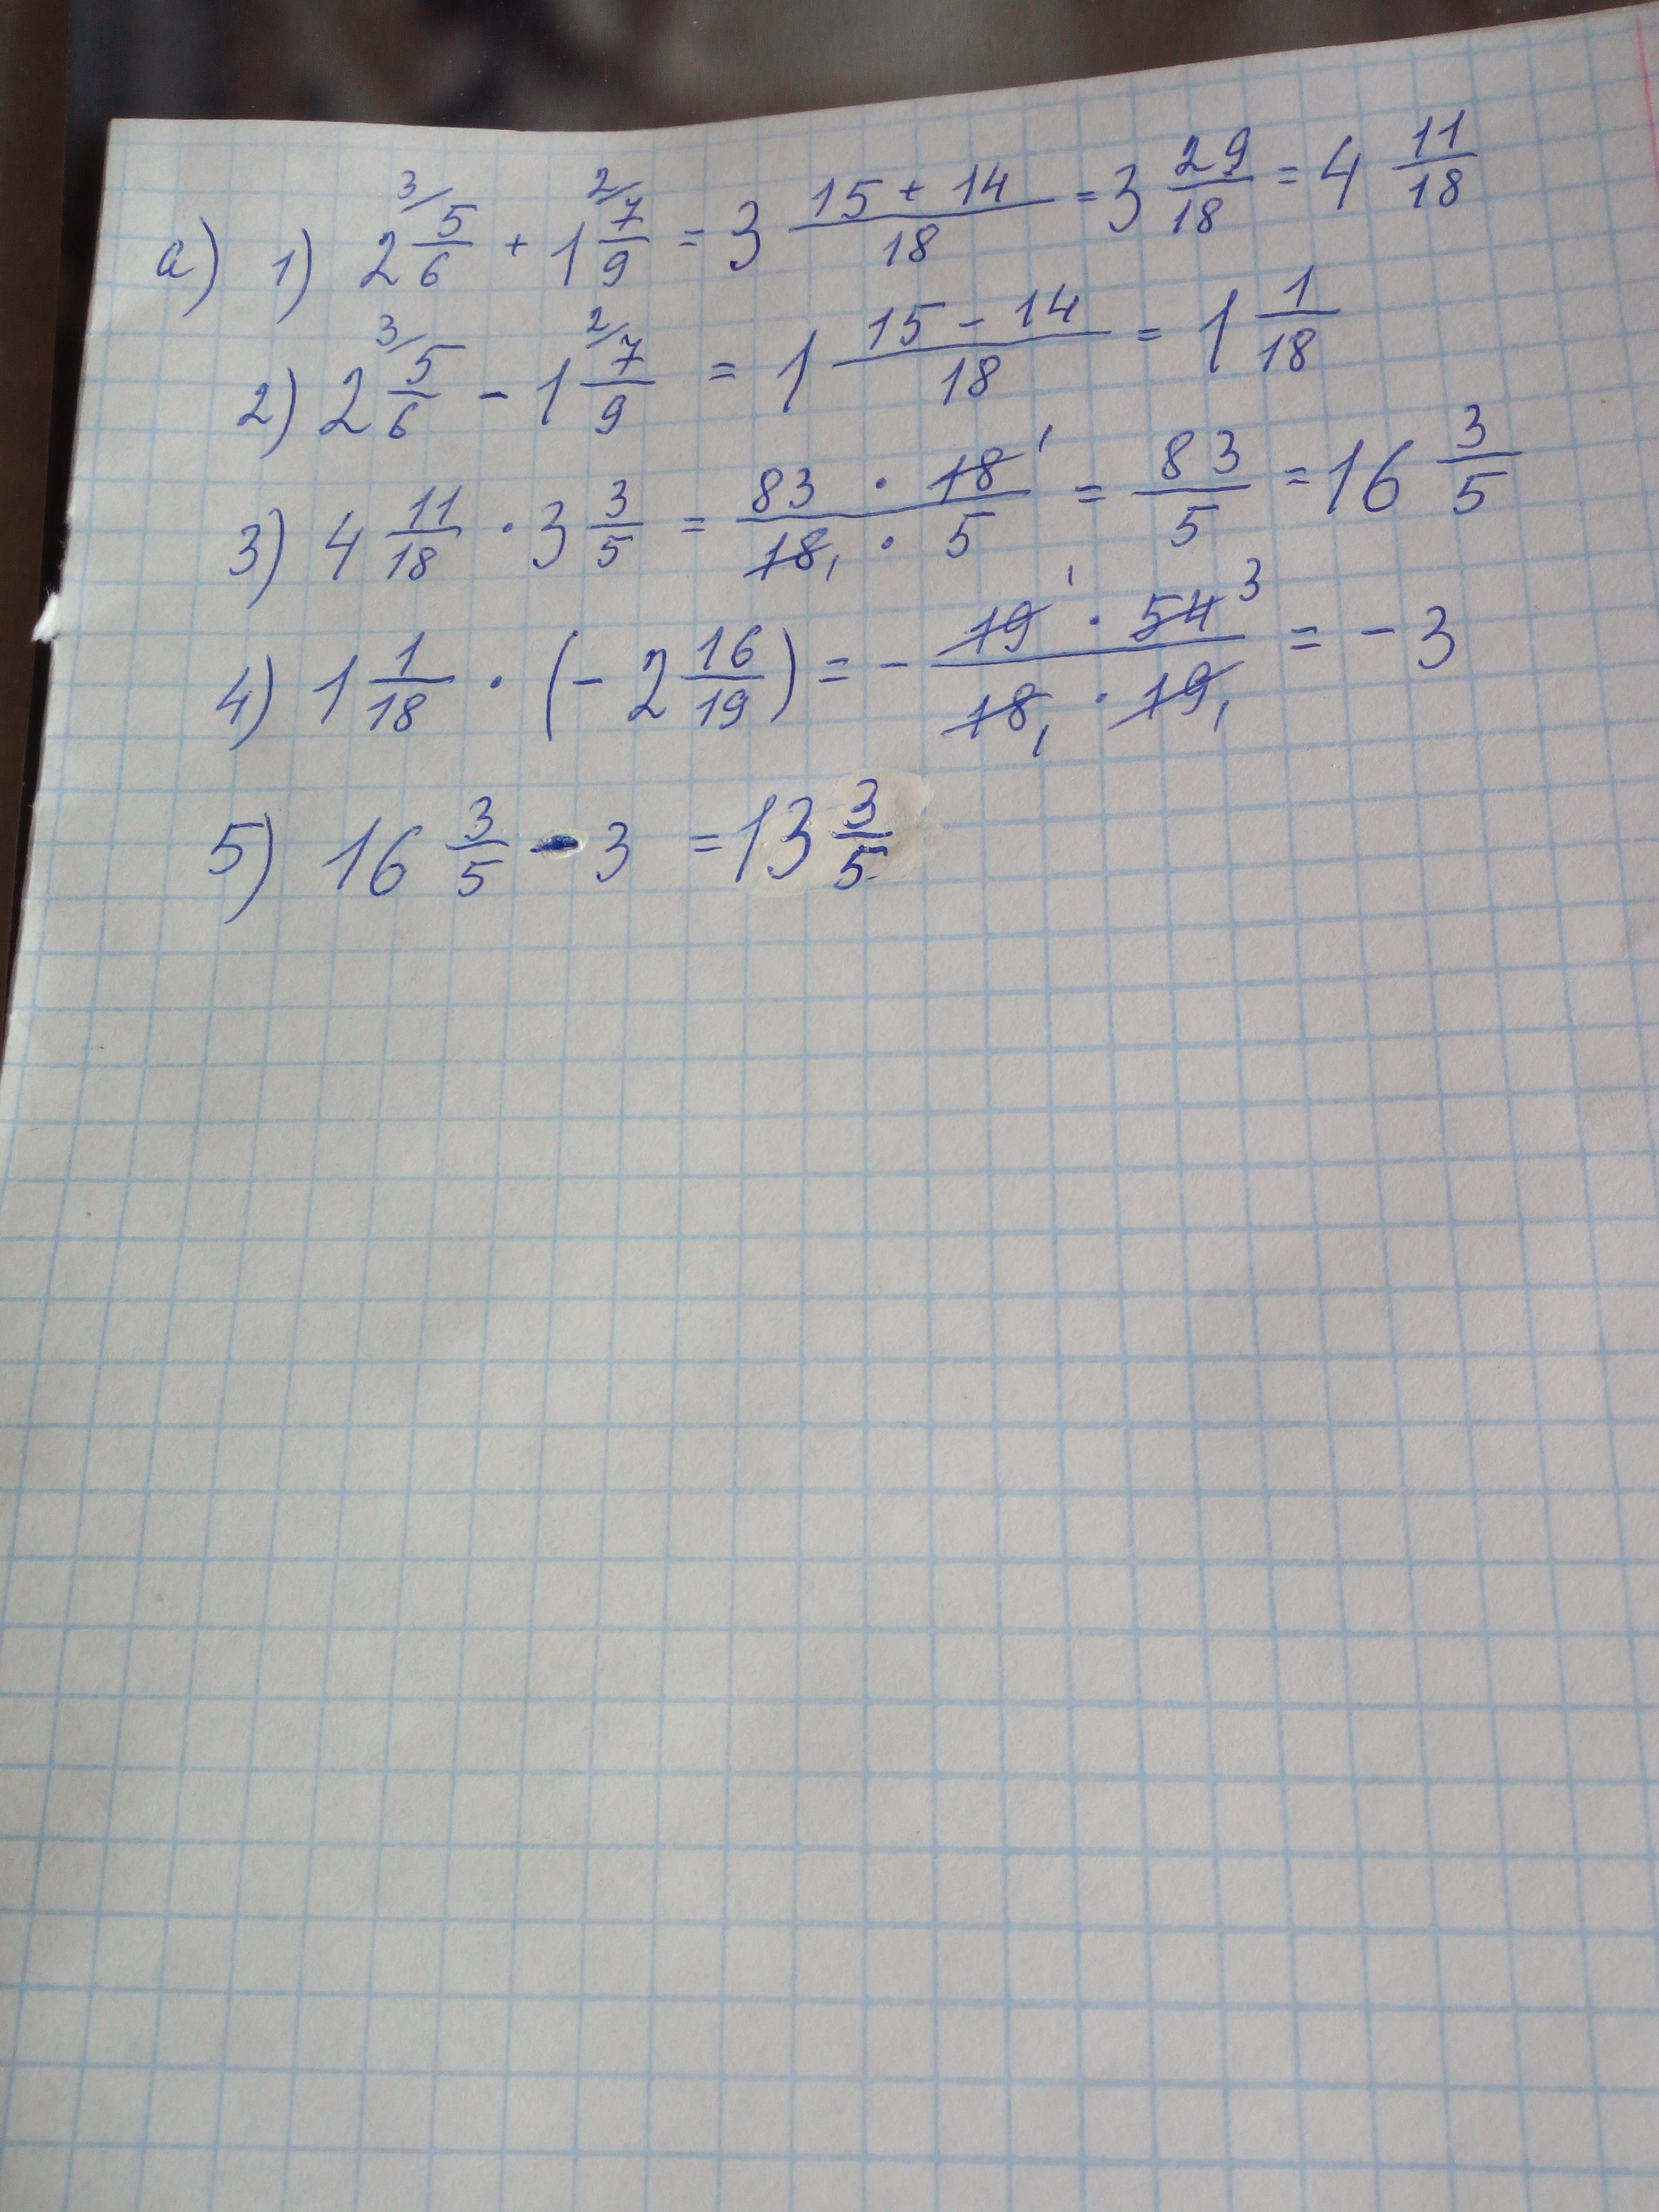 а) 1) 2 3/ 5/6 + 1 2/ 7/9 = 3 (15 + 14)/18 = 3 29/18 = 4 11/18
2) 2 3/ 5/6 - 1 2/ 7/9 = 1 (15 - 14)/18 = 1 1/18
3) 4 11/18 · 3 3/5 = (83 · 18 1)/(18 1 · 5) = 83/5 = 16 3/5
4) 1 1/18 · (- 2 16/19) = - (19 1 · 54 3)/(18 1 · 19 1) = - 3
5) 16 3/5 - 3 = 13 3/5